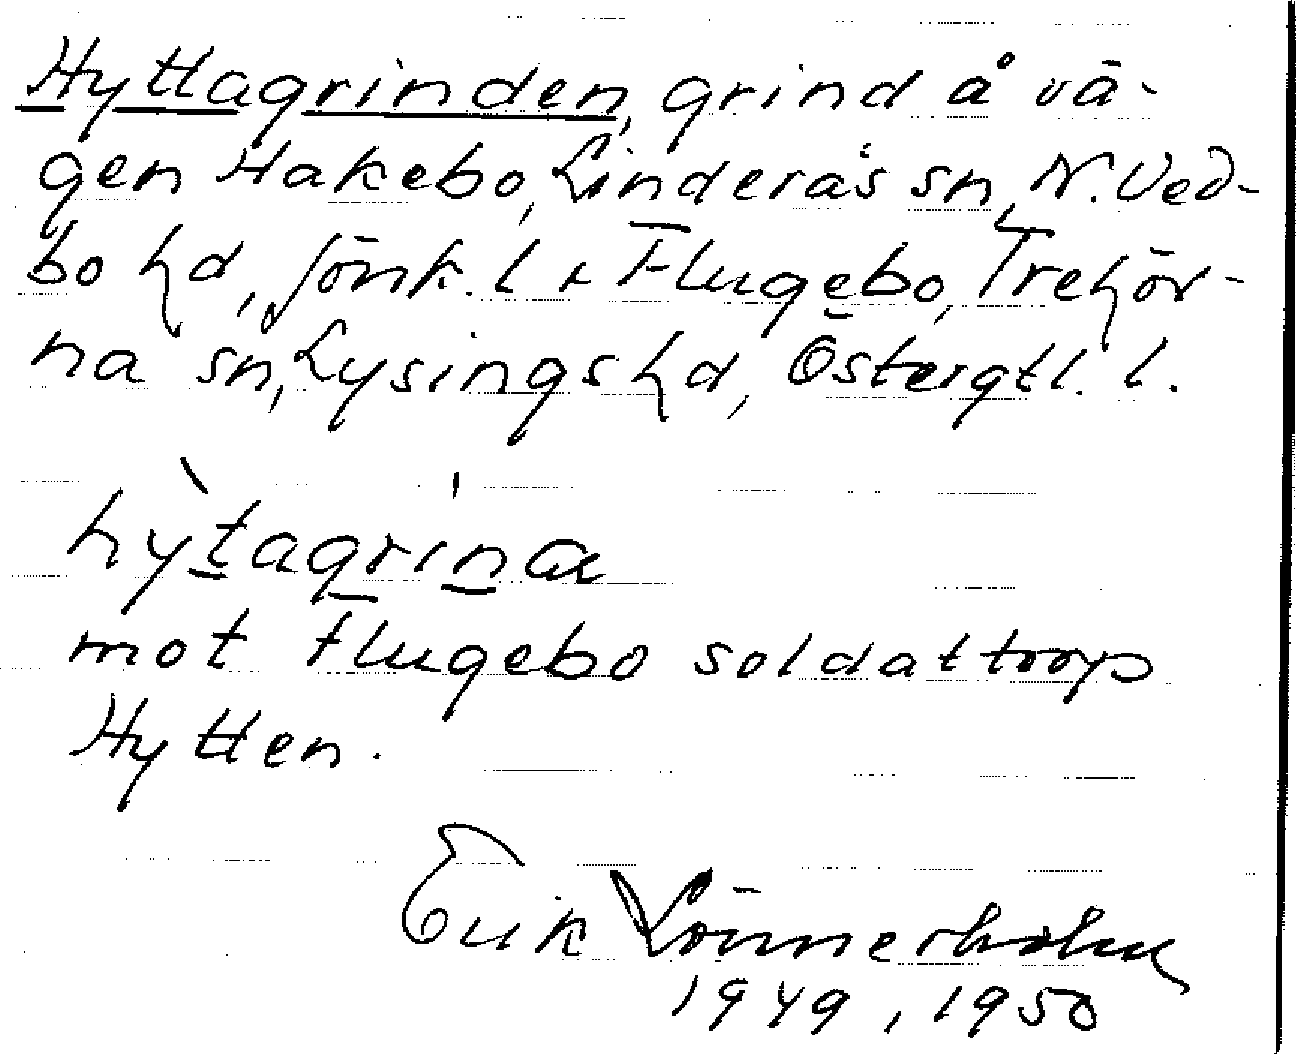 Hyttagrinden, grind å vä-
gen Hakebo, Linderås sn, N. Ved-
bo hd, Jönk. l & Flugebo, Trehör-
na sn, Lysings hd, Östergtl. l.
hẏ̀tagrinα
mot Flugebo soldattorp
Hytten.
Erik Lönnerholm
1949, 1950